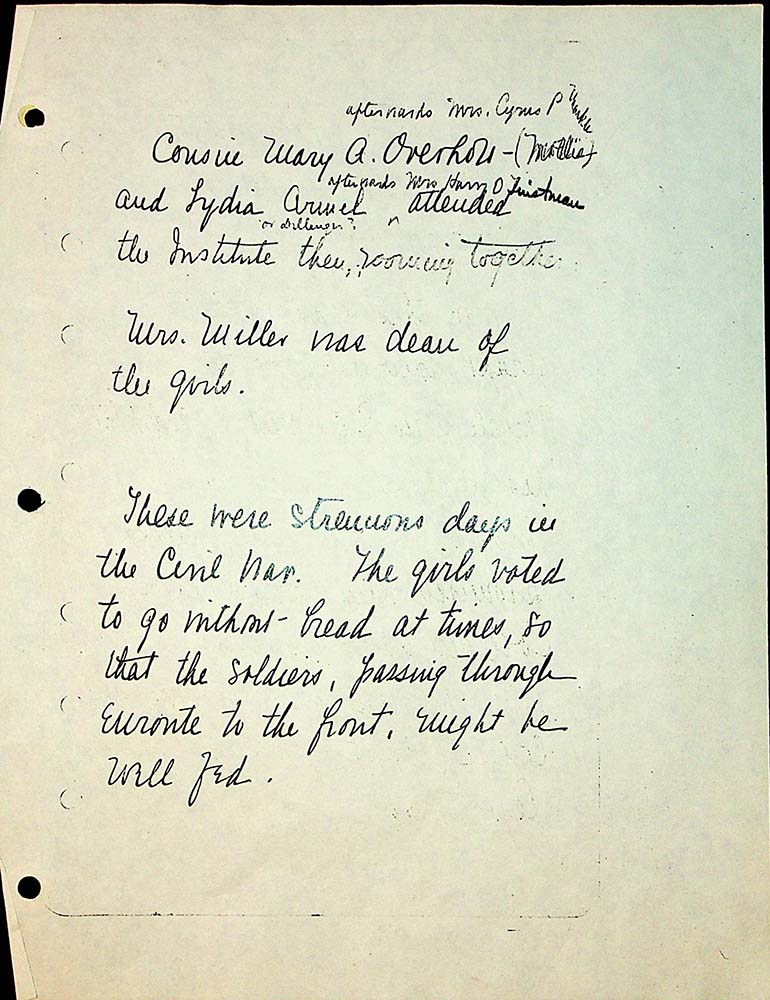 afterwards Mrs. Cyrus P
Cousin Mary A. Overholt-
afterwards Mrs Harry O
and Lydia Armel ^ attended
or Dillenger?
the Institute then, rooming together
Mrs. Miller was dean of
the girls.
These were strenuous days in
the Civil War. The girls voted
to go without bread at times, so
that the soldiers, passing through
enroute to the front, might be
well fed.